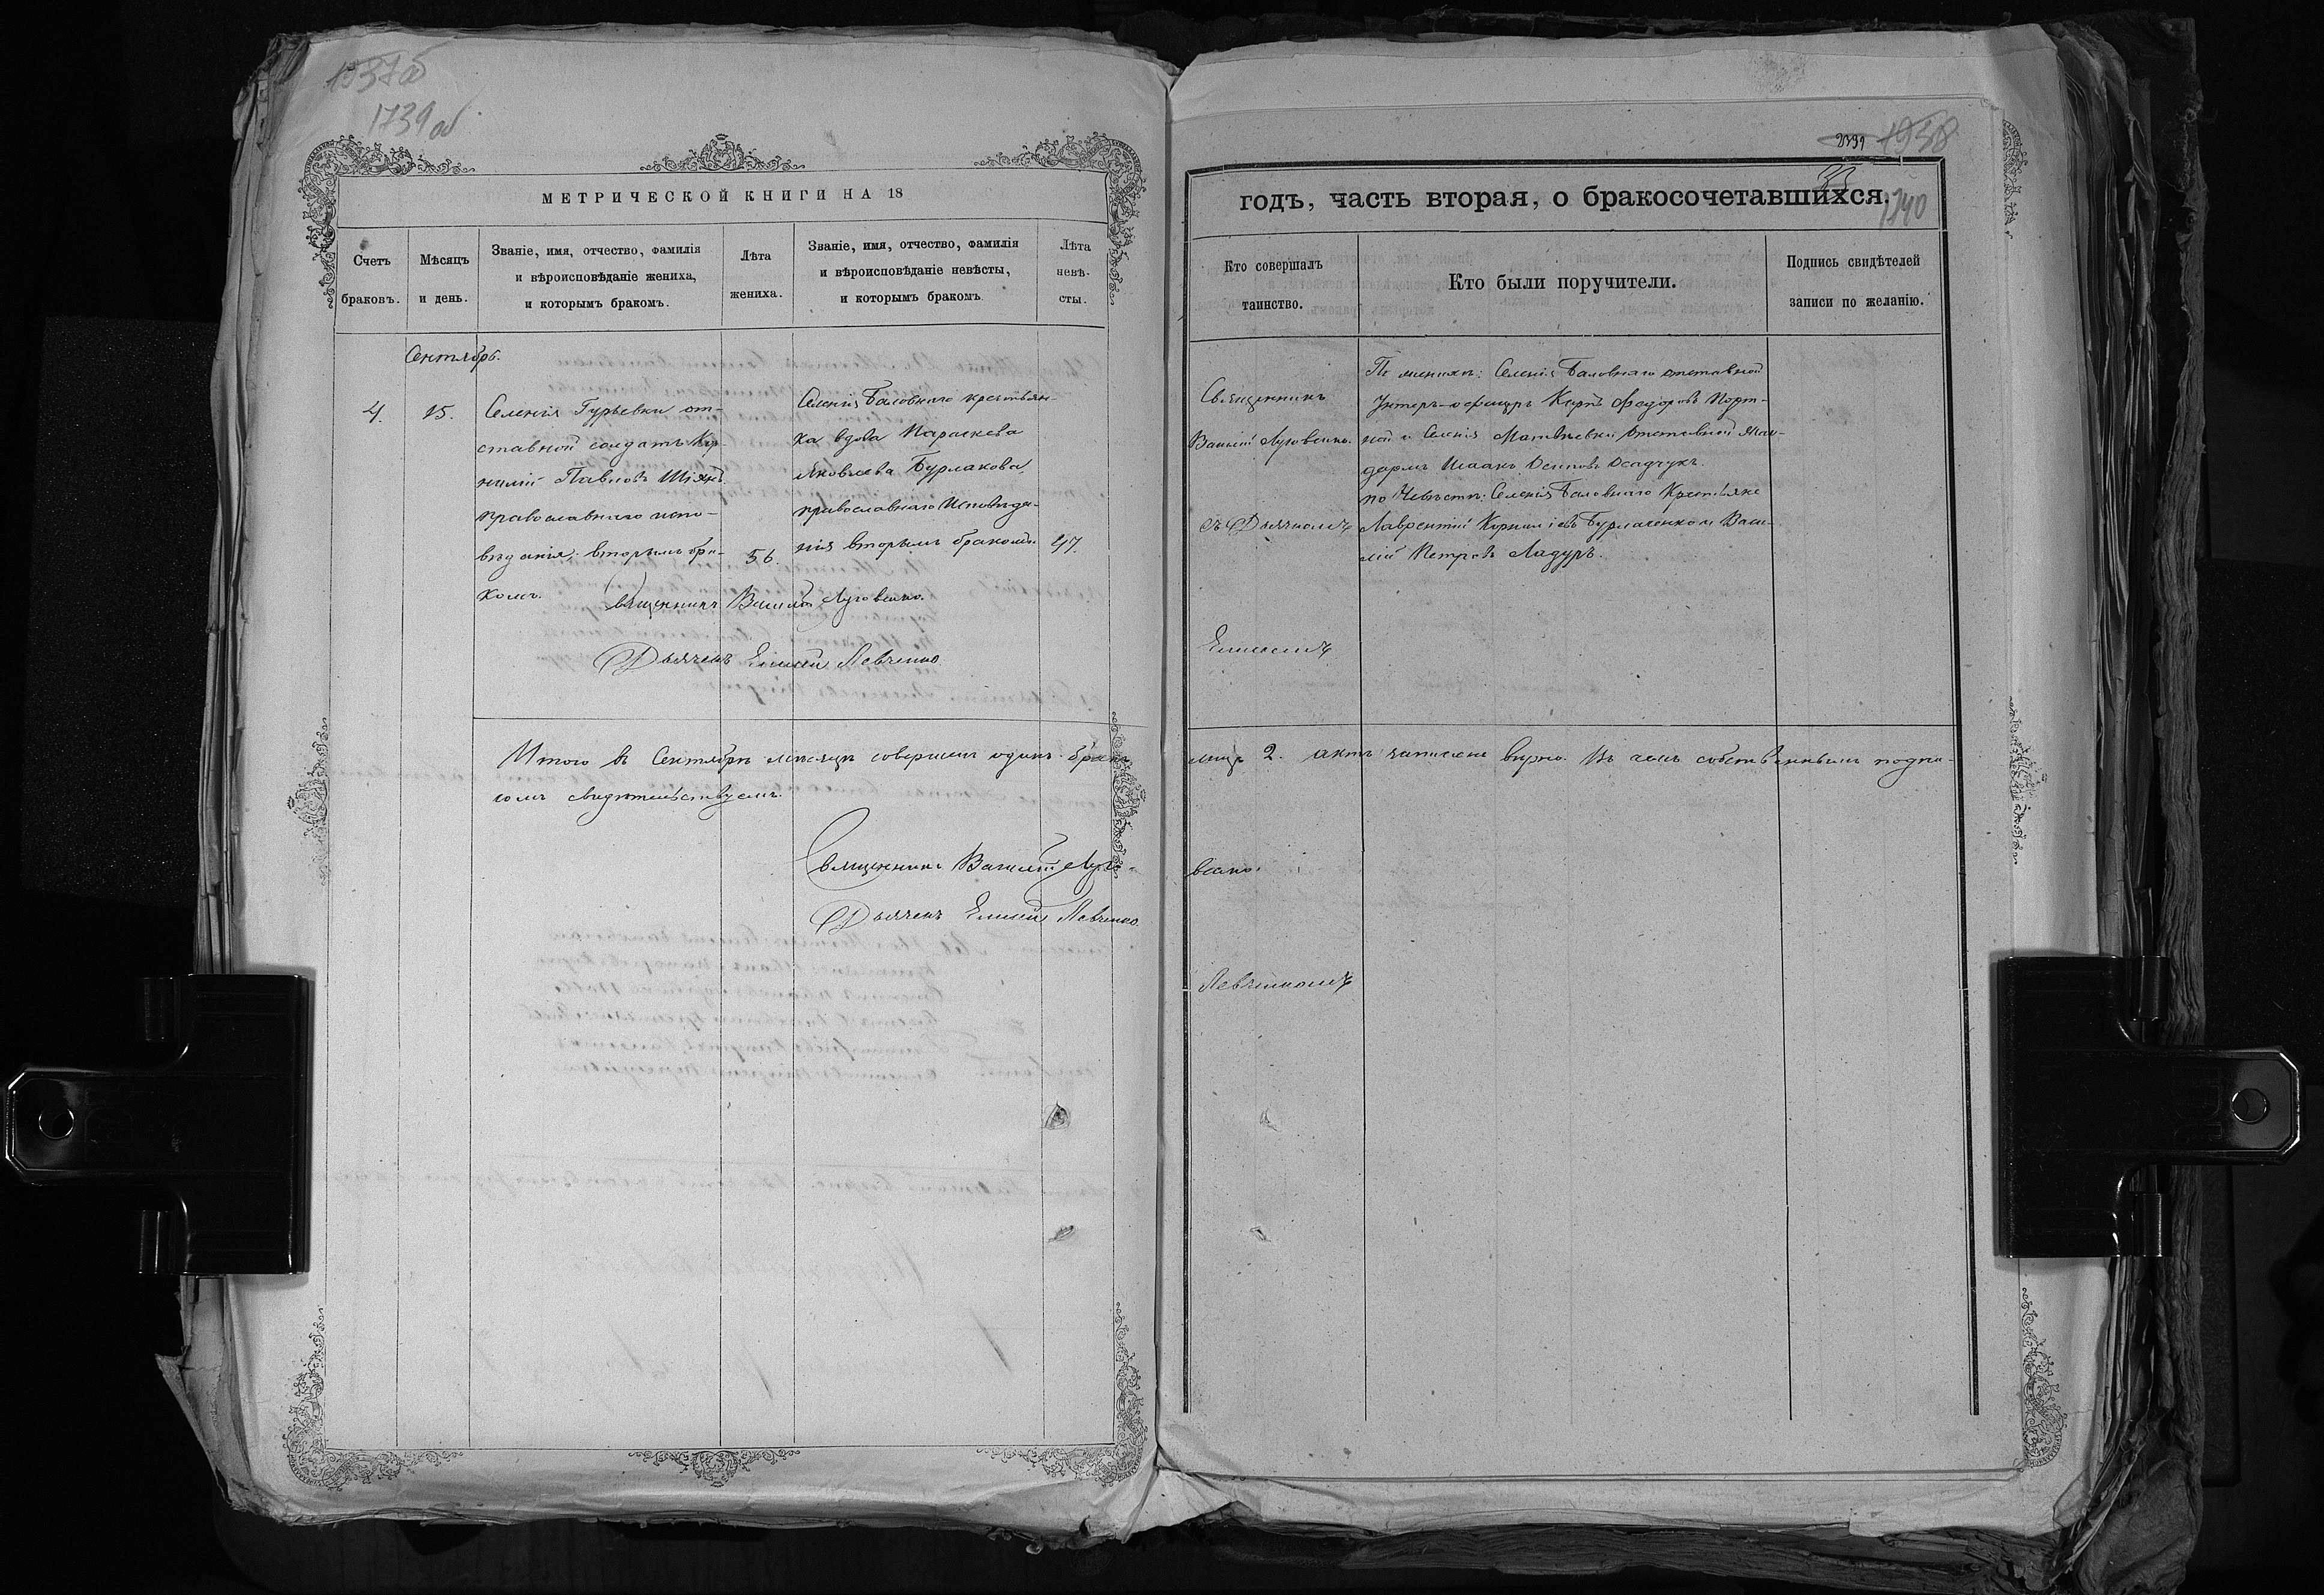 1739 об
МЕТРИЧЕСКОЙ КНИГИ НА 18
Счетъ браковъ.
Мѣсяцъ и день.
Званіе, имя, отчество, фамилія
и вѣроисповѣданіе жениха,
и которымъ бракомъ.
Лѣта жениха.
Званіе, имя, отчество, фамилія
и вѣроисповѣданіе невѣсты,
и которымъ бракомъ
Лѣта невѣ-
сты.
Сентябрь.
4.
15.
Селенія Гурьевки от-
ставной солдатъ Кор-
нилій Павловъ
православнаго испо-
вѣданія. вторымъ бра-
комъ.
56.
Селенія Баловнаго крестьян-
ка вдова Параскева
Яковлева Бурлакова
православнаго Исповѣда-
нія вторымъ бракомъ.
47.
Священникъ Василій Луговенко.
Дьячекъ Елисей Левченко
Итого въ Сентябрѣ мѣсяцѣ совершенъ одинъ бракъ
сомъ свидѣтельствуемъ.
Священникъ Василій Луго-
Дьячекъ Елисей Левченко.
1938
33
1740
годъ, часть вторая, о бракосочетавшихся.
Кто совершалъ
таинство.
Кто были поручители.
Подпись свидѣтелей
записи по желанію.
Священникъ
Василій Луговенко.
съ Дьячкомъ
Елисеемъ
Левченкомъ
По женихѣ: Селенія Баловнаго отставной
Унтеръ-офицеръ Карпъ Федоровъ Порт-
ной и Селенія Матвѣевки отставной Жан-
дармъ Исаакъ Осиповъ Осадчукъ.
по Невѣстѣ: Селенія Баловнаго Крестьяне
Лаврентій Корниліевъ Бурлаченко и Васи-
лій Петровъ Ладуръ.
2. актъ записанъ вѣрно. Въ чемъ собственнымъ подпи-
венко.